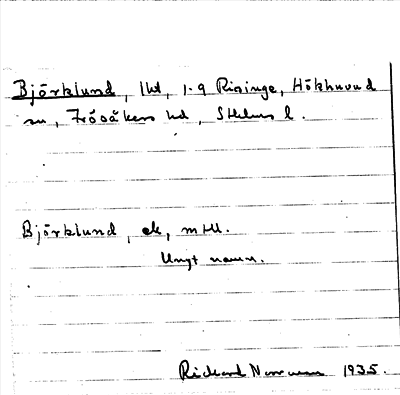 Björklund, lht, 1. g Risinge, Hökhuvud
sn, Frösåkers hd, Sthlms l.
Björklund, ek, mtl.
Ungt namn.
Rickard Norrman 1935.